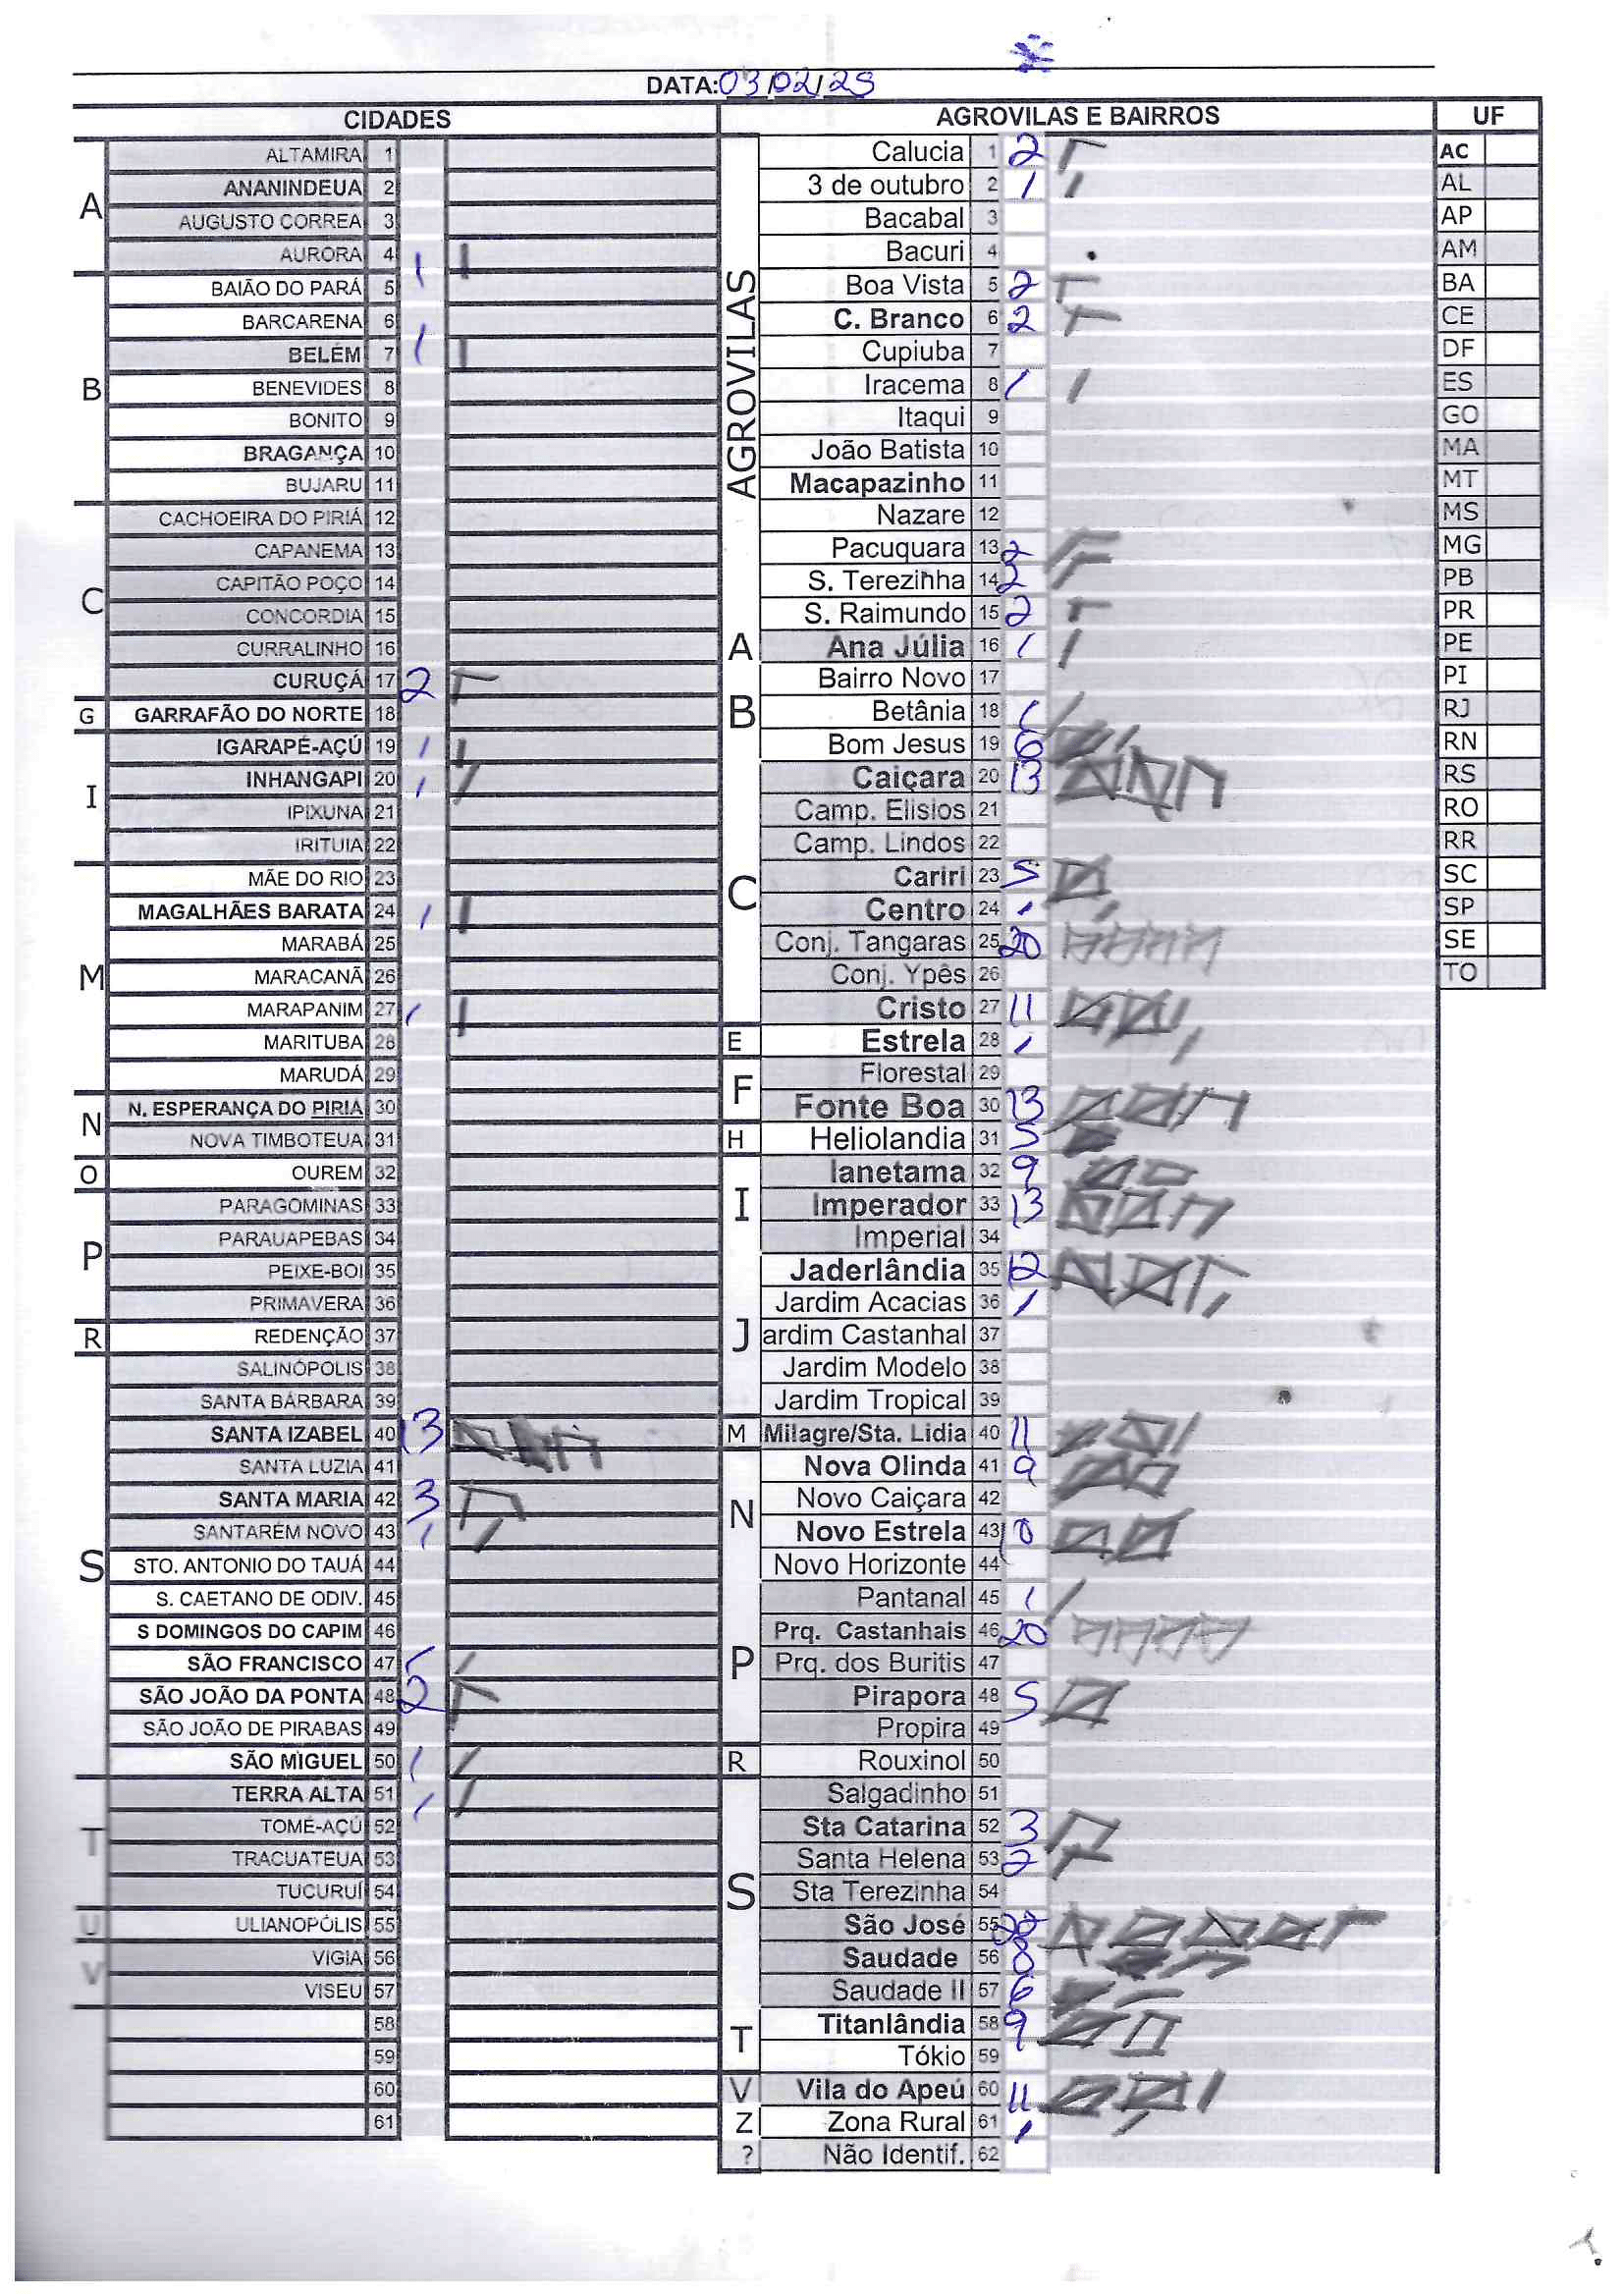 DATA: 03/02/25
CIDADES
A
ALTAMIRA 1
ANANINDEUA 2
AUGUSTO CORREA 3
AURORA 4 1
B
BAIÃO DO PARÁ 5
BARCARENA 6
BELÉM 7 1
BENEVIDES 8
BONITO 9
BRAGANÇA 10
BUJARU 11
C
CACHOEIRA DO PIRIÁ 12
CAPANEMA 13
CAPITÃO POÇO 14
CONCORDIA 15
CURRALINHO 16
CURUÇÁ 17 2
G
GARRAFÃO DO NORTE 18
I
IGARAPÉ-AÇÚ 19 1
INHANGAPI 20 1
IPIXUNA 21
IRITUIA 22
M
MÃE DO RIO 23
MAGALHÃES BARATA 24 1
MARABÁ 25
MARACANÃ 26
MARAPANIM 27 1
MARITUBA 28
MARUDÁ 29
N
N. ESPERANÇA DO PIRIÁ 30
NOVA TIMBOTEUA 31
O
OUREM 32
P
PARAGOMINAS 33
PARAUAPEBAS 34
PEIXE-BOI 35
PRIMAVERA 36
R
REDENÇÃO 37
S
SALINÓPOLIS 38
SANTA BÁRBARA 39
SANTA IZABEL 40 13
SANTA LUZIA 41
SANTA MARIA 42 3
SANTARÉM NOVO 43 1
STO. ANTONIO DO TAUÁ 44
S. CAETANO DE ODIV. 45
S DOMINGOS DO CAPIM 46
SÃO FRANCISCO 47
SÃO JOÃO DA PONTA 48 2
SÃO JOÃO DE PIRABAS 49
SÃO MIGUEL 50 1
T
TERRA ALTA 51 1
TOMÉ-AÇÚ 52
TRACUATEUA 53
TUCURUÍ 54
U
ULIANOPÓLIS 55
V
VIGIA 56
VISEU 57
58
59
60
61
AGROVILAS E BAIRROS
AGROVILAS
Calucia 1 2
3 de outubro 2 1
Bacabal 3
Bacuri 4
Boa Vista 5 2
C. Branco 6 2
Cupiuba 7
Iracema 8 1
Itaqui 9
João Batista 10
Macapazinho 11
Nazare 12
Pacuquara 13 2
S. Terezinha 14 2
S. Raimundo 15 2
A
Ana Júlia 16 1
Bairro Novo 17
B
Betânia 18 1
Bom Jesus 19 6
C
Caiçara 20 13
Camp. Elisios 21
Camp. Lindos 22
Cariri 23 5
Centro 24 1
Conj. Tangaras 25 20
Conj. Ypês 26
Cristo 27 11
E
Estrela 28 1
F
Florestal 29
Fonte Boa 30 13
H
Heliolandia 31 5
I
Ianetama 32 9
Imperador 33 13
Imperial 34
J
Jaderlândia 35 12
Jardim Acacias 36 1
ardim Castanhal 37
Jardim Modelo 38
Jardim Tropical 39
M
Milagre/Sta. Lidia 40 11
N
Nova Olinda 41 9
Novo Caiçara 42
Novo Estrela 43 10
Novo Horizonte 44
P
Pantanal 45 1
Prq. Castanhais 46 20
Prq. dos Buritis 47
Pirapora 48 5
Propira 49
R
Rouxinol 50
S
Salgadinho 51
Sta Catarina 52 3
Santa Helena 53 2
Sta Terezinha 54
São José 55
Saudade 56 8
Saudade II 57 6
T
Titanlândia 58 9
Tókio 59
V
Vila do Apeú 60 11
Z
Zona Rural 61 1
?
Não Identif. 62
UF
AC
AL
AP
AM
BA
CE
DF
ES
GO
MA
MT
MS
MG
PB
PR
PE
PI
RJ
RN
RS
RO
RR
SC
SP
SE
TO